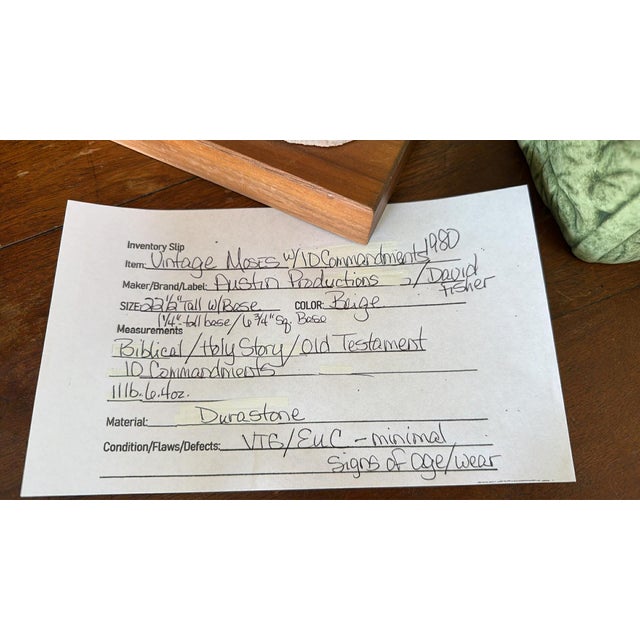 Inventory Slip
Item: Vintage Moses w/ 10 Commandments 1980
Maker/Brand/Label: Austin Productions / David Fisher
SIZE: 22 1/2" Tall w/Base COLOR: Beige
1 1/4" tall base / 6 3/4" sq. Base
Measurements
Biblical / Holy Story / Old Testament
10 Commandments
11 lb. 6.4oz.
Material: Durastone
Condition/Flaws/Defects: VTG/EUC - minimal
signs of age/wear